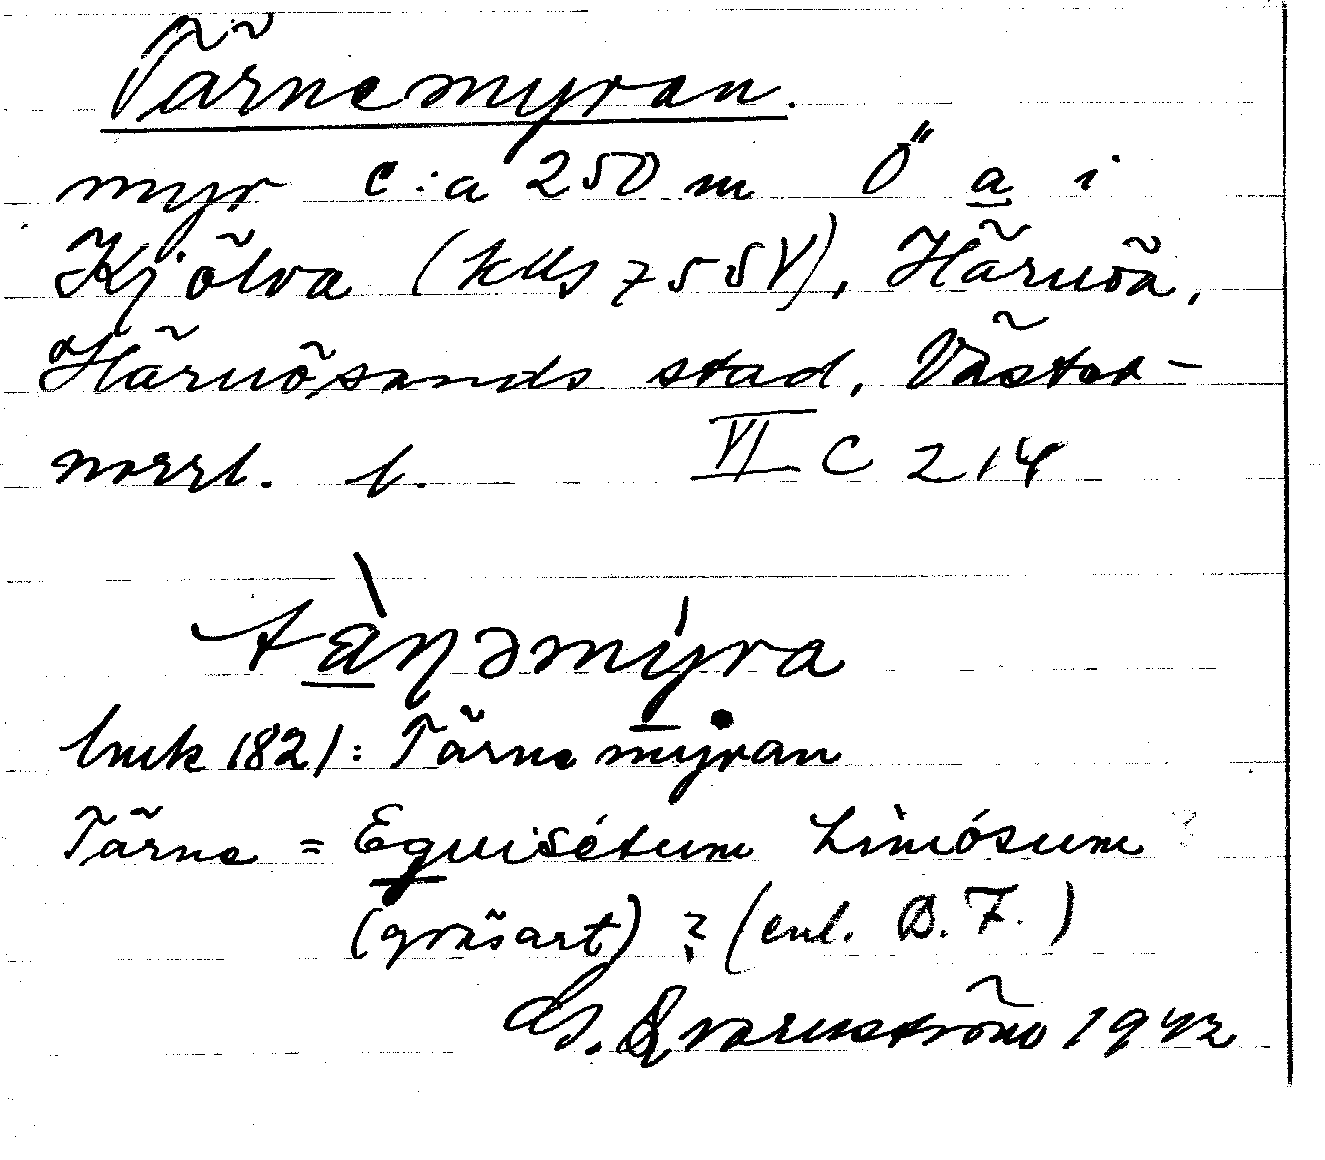 Tärnemyran.
myr c:a 250 m Ö a i
Kjölva (kks 755V), Härnöä,
Härnösands stad, Väster-
norrl. l. VI C 214
tàɳəmýra
Lmk 1821: Tärnemyran
Tärne = Equisétum Limósum
(gräsart) ? (enl. B. F.)
G. Qvarnström 1942